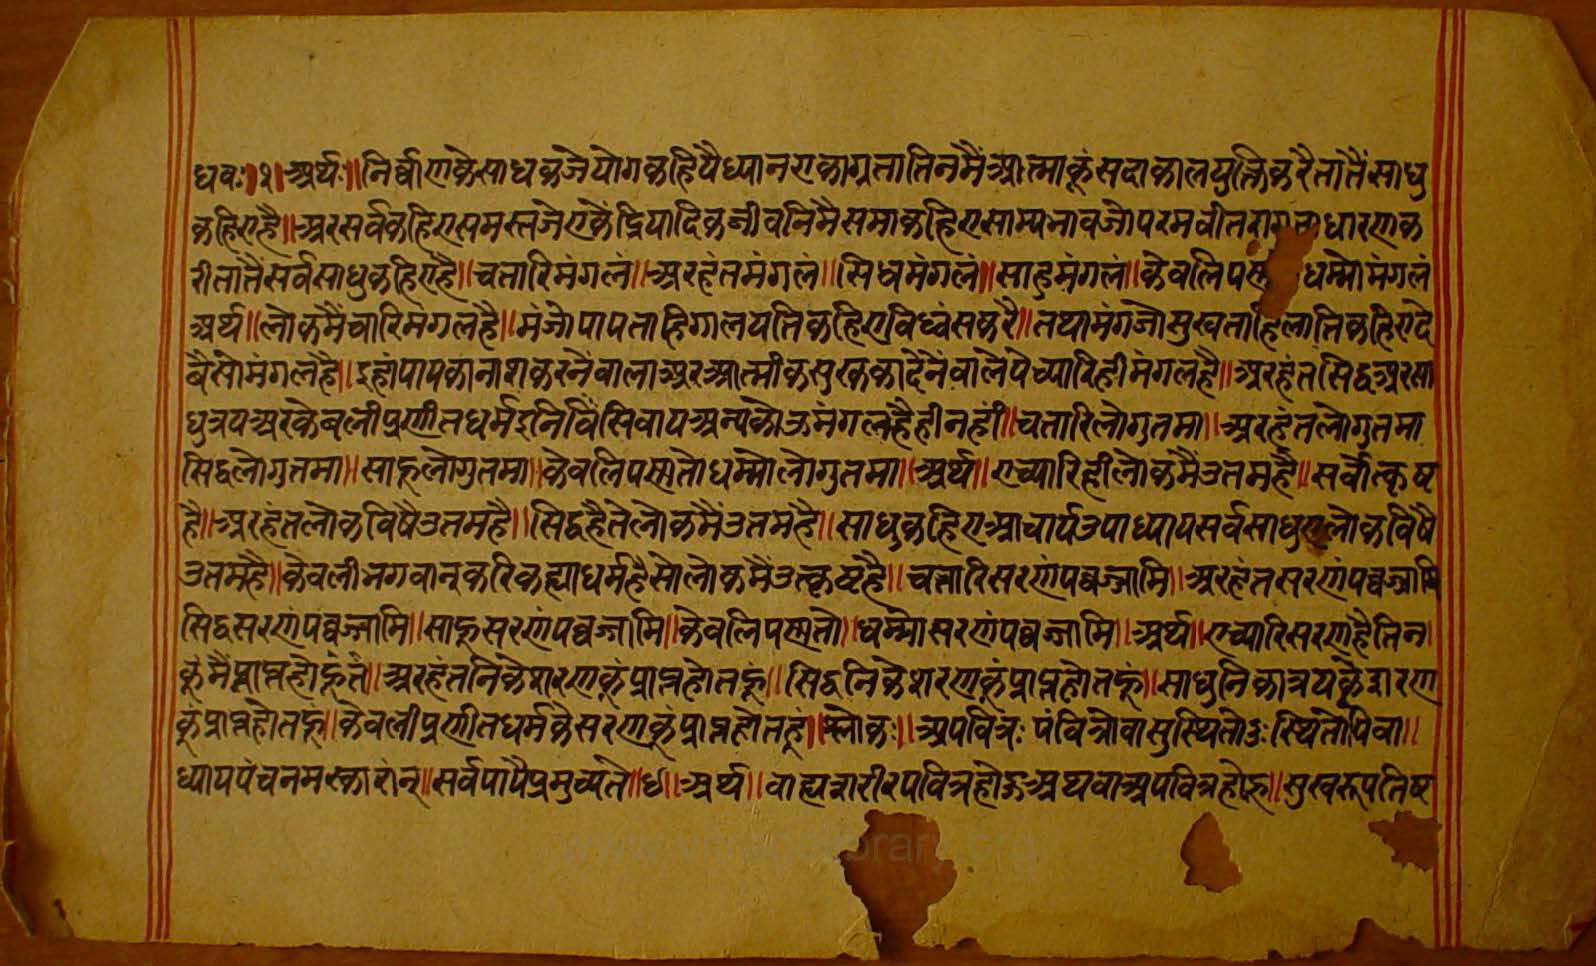 धवः।१।अर्थः॥निर्वाणकेसाधकजेयोगकहियैध्यानएकाग्रतातिनमैंआत्माकूंसदाकालयुक्तिकरैतातैंसाधु
कहिएहै॥अरसर्वकहिएसमस्तजेएकेंद्रियादिकजीवनिमैसमाकहिएसाम्यभावजोपरमवीतरागताधारणक
रीतातैंसर्वसाधुकहिएहै॥चतारिमंगलं॥अरहंतमंगलं॥सिधमंगलं॥साहुमंगलं॥केवलिपस धम्मोमंगलं
अर्थ॥लोकमैंचारिमंगलहै॥मंजोपापताहिगालयतिकहिएविध्वंसकरै॥तथामंगजोसुखताहिलातिकहिएदे
बैसोमंगलहै॥इहांपापकानाशकरनैवालाअरआत्मीकसुखकादेनैवालैपेच्यारिहीमंगलहै॥अरहंतसिद्धअरसा
धुत्रयअरकेवलीप्रणीतधर्मइनिविंसिवायअन्यकोऊमंगलहैहीनहीं॥चतारिलोगुतमा॥अरहंतलोगुतमा
सिद्धलोगुतमा॥साहूलोगुतमा॥केवलिपस्मतोधम्मोलोगुतमा॥अर्थ॥एच्यारिहीलोकमैंउतमहै॥सर्वोत्कृष
है॥अरहंतलोकविषैउतमहै॥सिद्धहैतेलोकमैंउतमहै॥साधुकहिएआचार्यउपाध्यायसर्वसाधुएलोकविषै
उतमहै॥केवलीभगवान्करिकह्याधर्महैसोलोकमैंउत्कृष्टहै॥चत्तारिसरणंपव्वज्जामि॥अरहंतसरणंपव्वज्जामि
सिद्धसरणंपव्वज्जामि॥साहूसरणंपव्वज्जामि॥केवलिपस्मतो॥धम्मोसरणंपव्वज्जामि॥अर्थ॥एच्यारिसरणहैतिन
कूंमैंप्राप्तहोहूंतं॥अरहंतनिकेशरणकूंप्राप्तहोतहूं॥सिद्धनिकेशरणकूंप्राप्तहोतहूं॥साधुनिकात्रयकैशरण
कूंप्राप्तहोतहूं॥केवलीप्रणीतधर्मकैसरणकूंप्राप्तहोतहूं॥श्लोकः॥अपवित्रः पवित्रोवासुस्थितोदुःस्थितोपिवा॥
ध्यायपंचनमस्कारान्॥सर्वपापैप्रमुच्यते॥ध॥अर्थ॥वाह्यशरीरपवित्रहोऊअथवाअपवित्रहोहू॥सुखरूपतिष